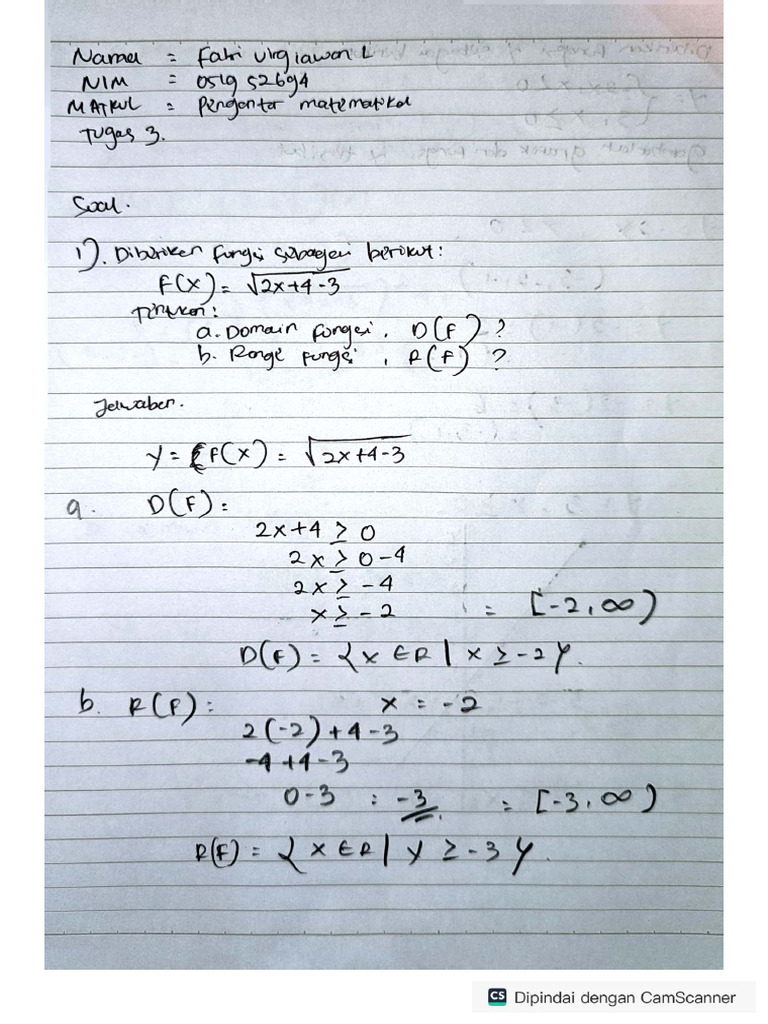 Nama = Fahri Virgiawan L
NIM = 051952694
MATKUL = Pengantar matematika
Tugas 3.
Soal.
1). Diberikan fungsi sebagai berikut:
F(x) = √2x+4-3
Tentukan:
a. Domain fungsi, D(F)?
b. Range fungsi, R(F)?
Jawaban.
y = F(x) = √2x+4-3
a. D(F):
2x+4 ≥ 0
2x ≥ 0-4
2x ≥ -4
x ≥ -2 = [-2, ∞)
D(F) = {x ∈ R | x ≥ -2}.
b. R(F): x = -2
2(-2)+4-3
-4+4-3
0-3 : -3 = [-3, ∞)
R(F) = {x ∈ R | y ≥ -3}.
CS Dipindai dengan CamScanner